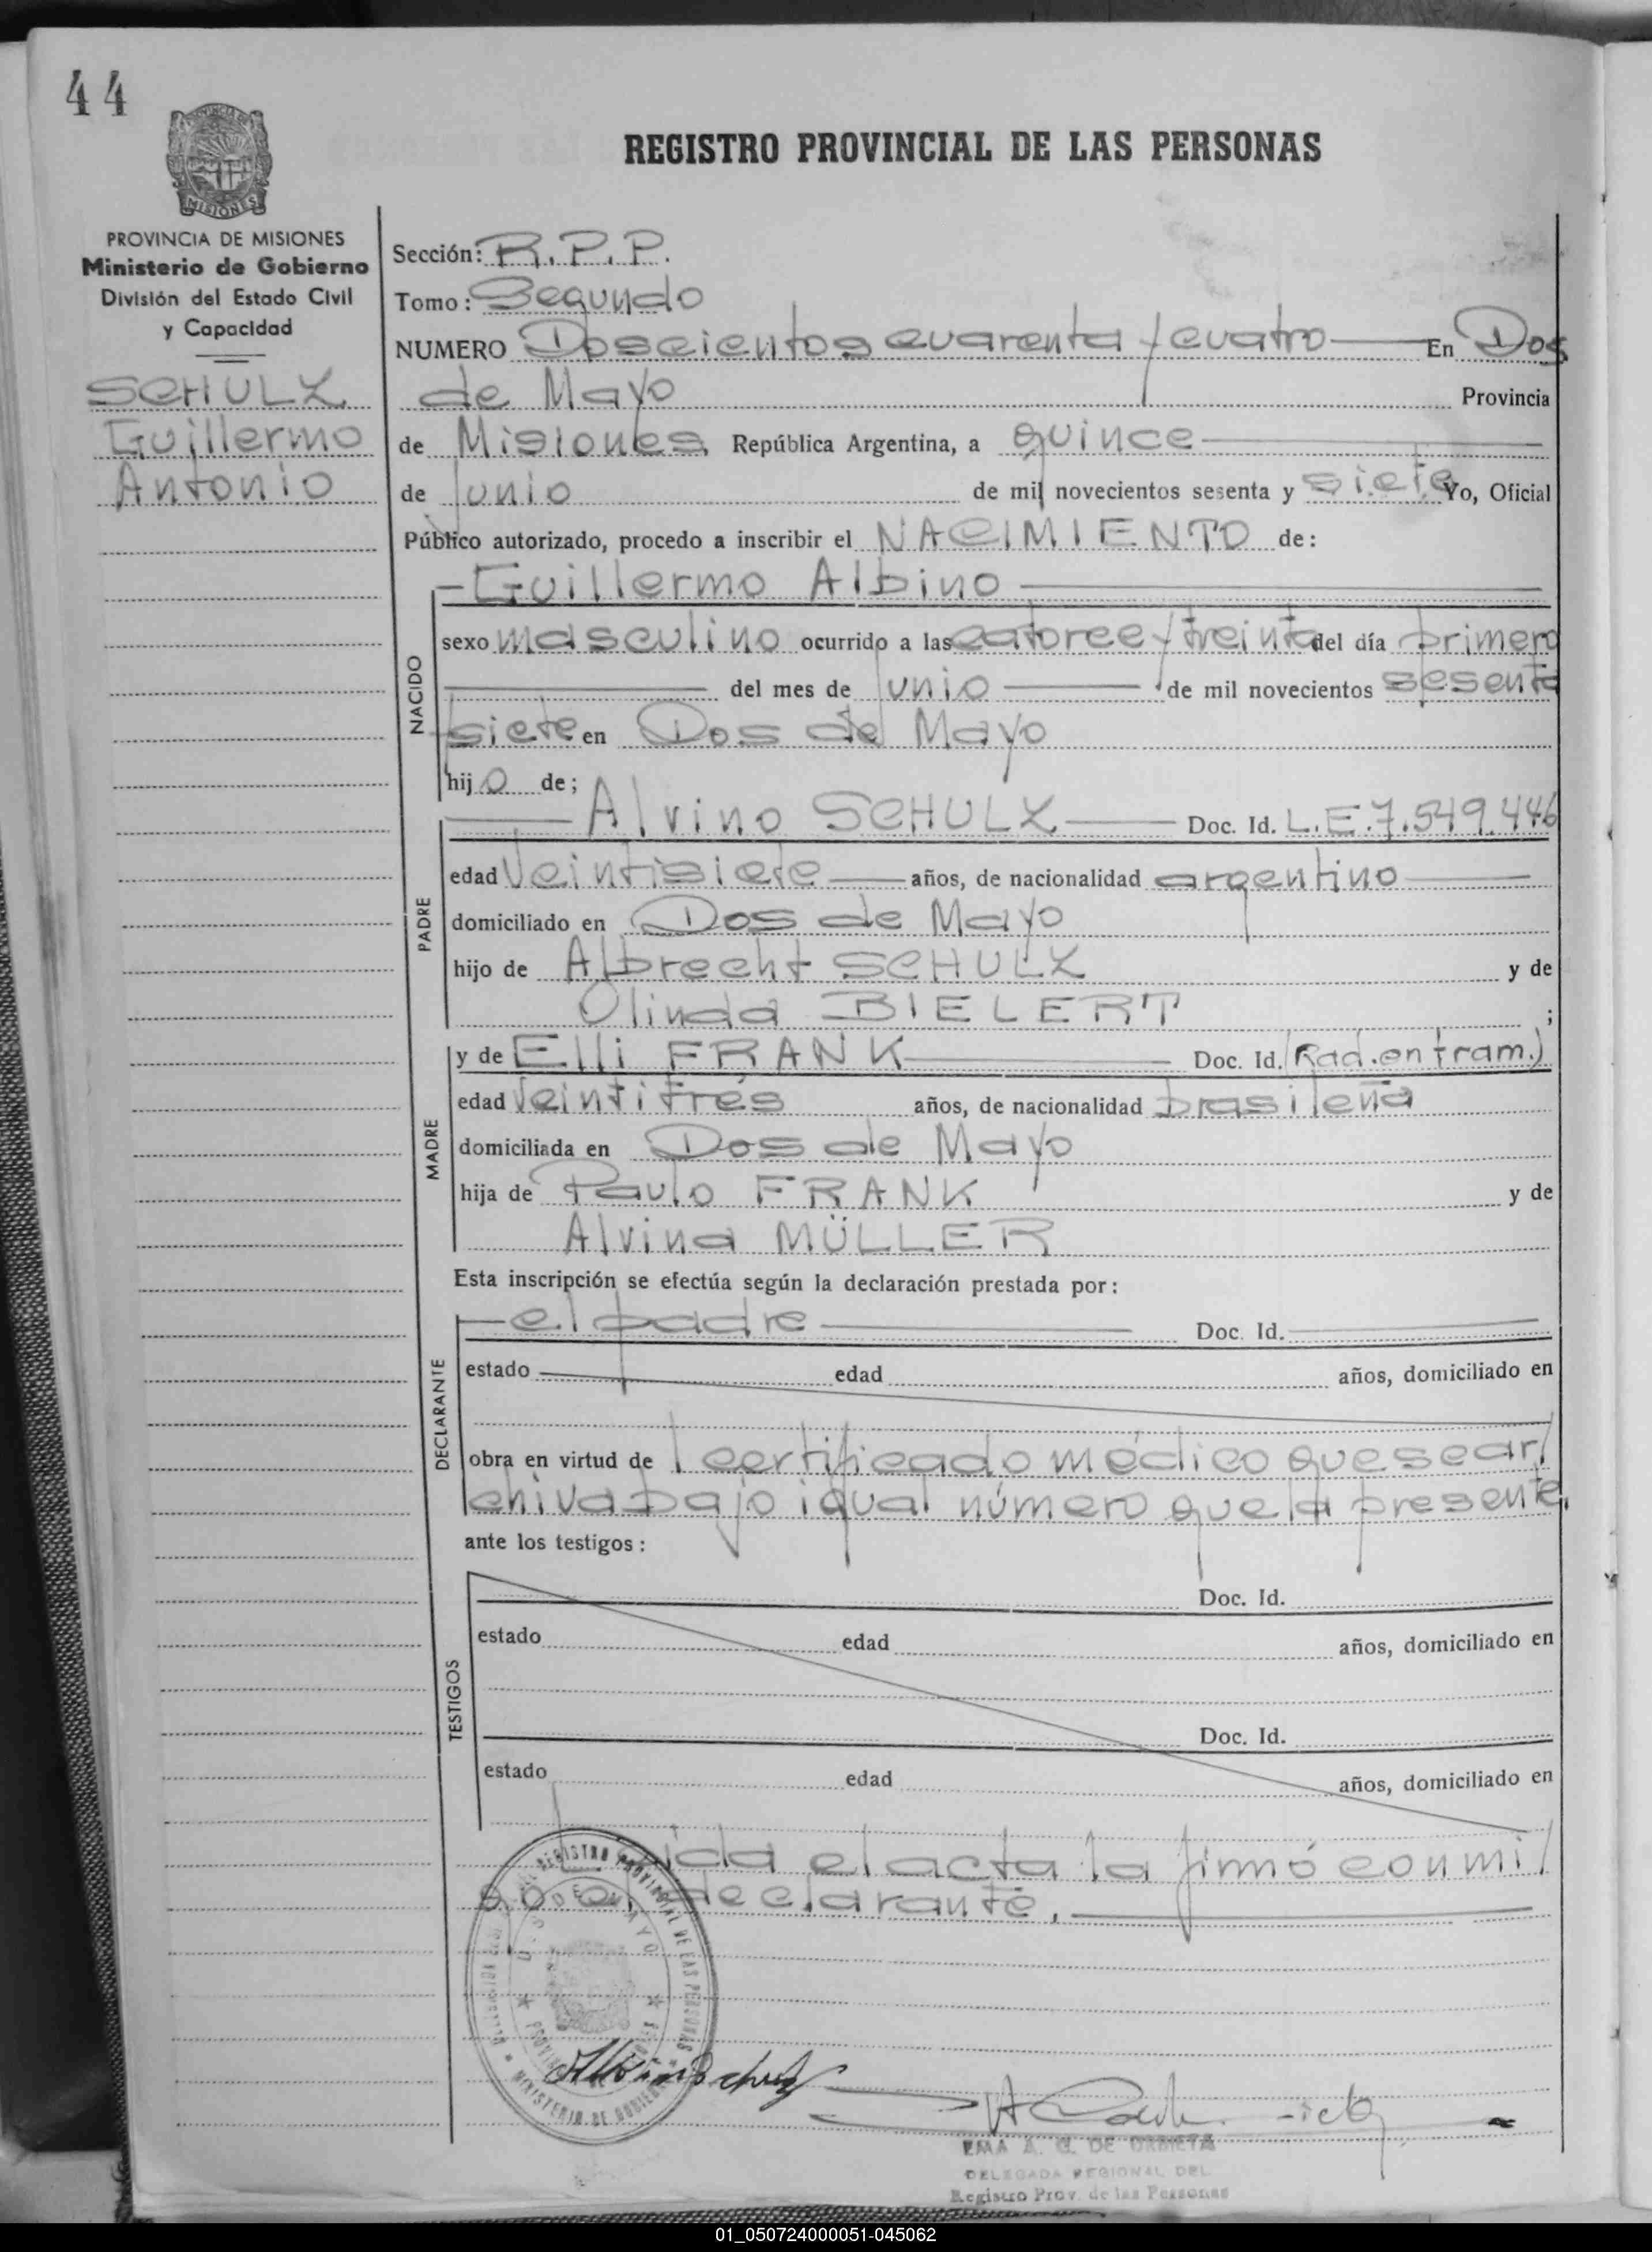 44
REGISTRO PROVINCIAL DE LAS PERSONAS
MISIONES
PROVINCIA DE MISIONES
Ministerio de Gobierno
División del Estado Civil
y Capacidad
SCHULZ
Guillermo
Antonio
Sección: R.P.P.
Tomo: Segundo
NUMERO Doscientos cuarenta y cuatro En Dos
de Mayo Provincia
de Misiones República Argentina, a quince
de junio de mil novecientos sesenta y siete Yo, Oficial
Público autorizado, procedo a inscribir el NACIMIENTO de:
NACIDO
Guillermo Albino
sexo masculino ocurrido a las catorce y treinta del día primero
del mes de junio de mil novecientos sesenta
siete en Dos de Mayo
hijo de;
PADRE
Alvino SCHULZ Doc. Id. L.E.7.549.446
edad veintisiete años, de nacionalidad argentino
domiciliado en Dos de Mayo
hijo de Albrecht SCHULZ y de
Olinda BIELERT ;
MADRE
y de Elli FRANK Doc. Id. (Rad.en tram.)
edad veintitrés años, de nacionalidad brasileña
domiciliada en Dos de Mayo
hija de Paulo FRANK y de
Alvina MÜLLER
Esta inscripción se efectúa según la declaración prestada por:
DECLARANTE
el padre Doc. Id.
estado edad años, domiciliado en
obra en virtud de l certificado médico que se ar/
chiva bajo igual número que la presente.
ante los testigos:
TESTIGOS
Doc. Id.
estado edad años, domiciliado en
Doc. Id.
estado edad años, domiciliado en
ida el acta la firmó conmi/
go el declarante.
REGISTRO PROVINCIAL DE LAS PERSONAS
DOS DE MAYO
MINISTERIO DE GOBIERNO
Alvino Schulz
EMA A. G. DE URBIETA
DELEGADA REGIONAL DEL
Registro Prov. de las Personas
01_050724000051-045062